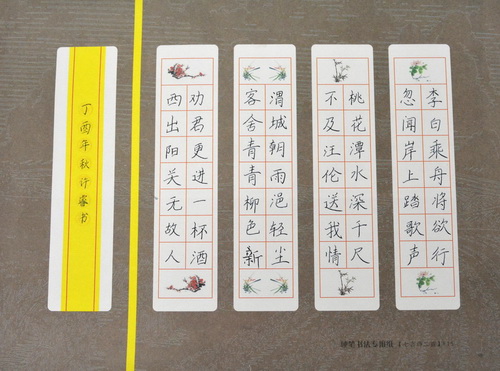 李白乘舟将欲行
忽闻岸上踏歌声
桃花潭水深千尺
不及汪伦送我情
渭城朝雨浥轻尘
客舍青青柳色新
劝君更进一杯酒
西出阳关无故人
丁酉年秋许书
硬笔书法专用纸